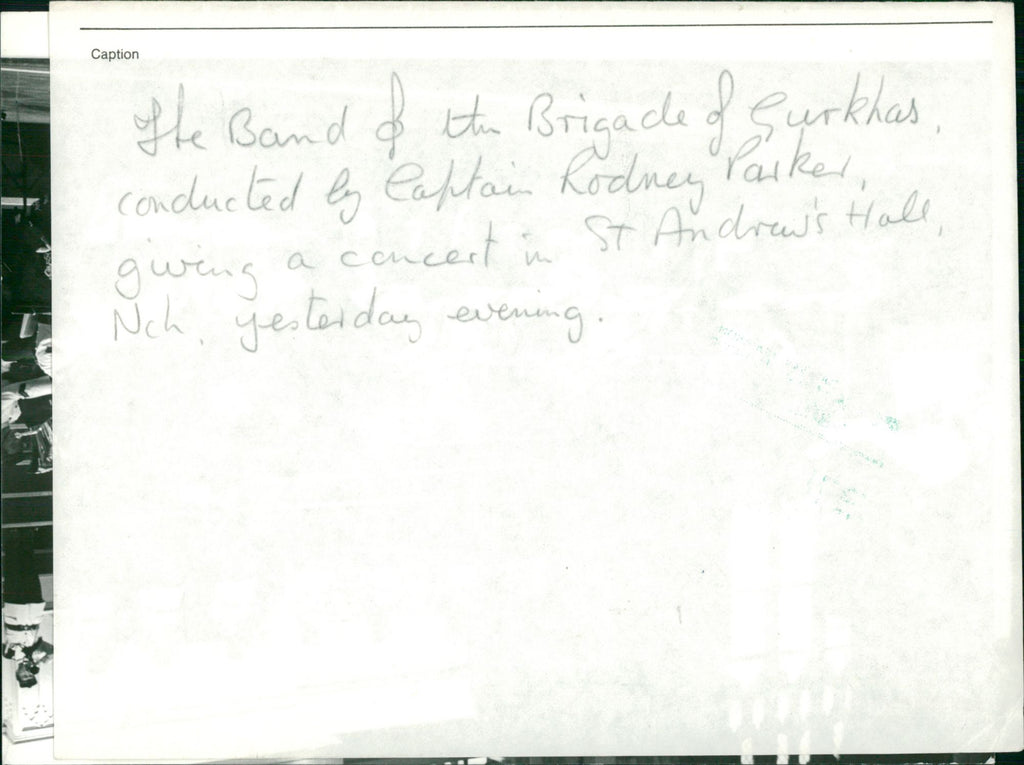 Caption
The Band of the Brigade of Gurkhas,
conducted by Captain Rodney Parker,
giving a concert in St Andrew's Hall,
Nch, yesterday evening.